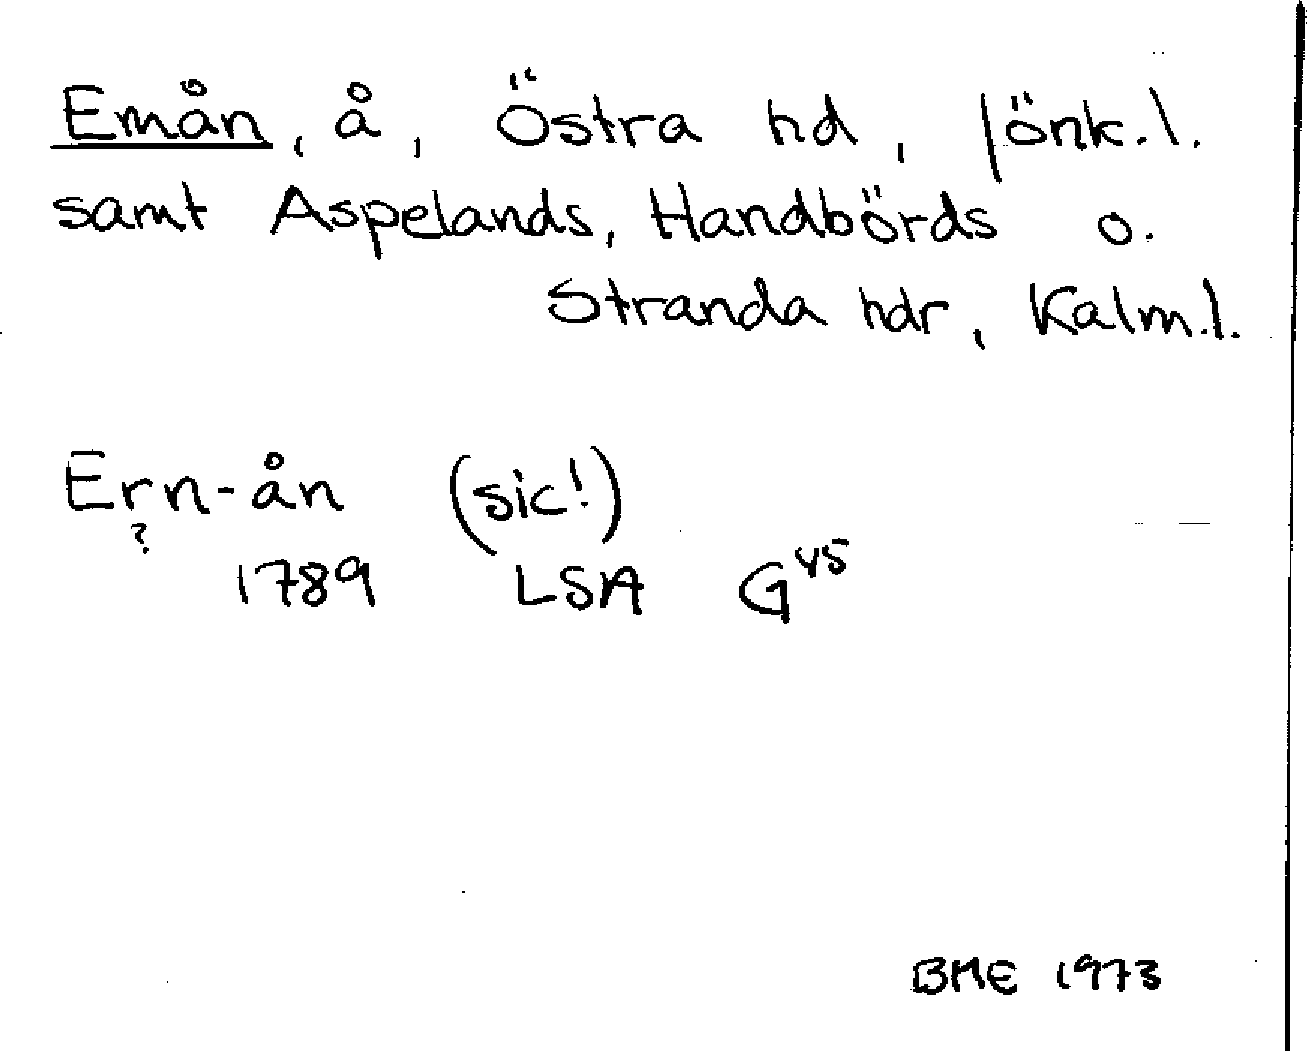 Emån, å, Östra hd, Jönk.l.
samt Aspelands, Handbörds o.
Stranda hdr, Kalm.l.
Ern-ån (sic!)
?
1789 LSA G45
BME 1973